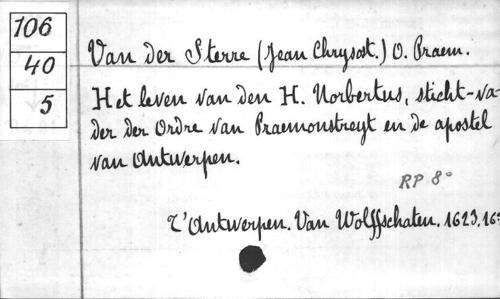 106
40
5
Van der Sterre (Jean Chrysost.) O. Praem.
Het leven van den H. Norbertus, sticht-va-
der der Ordre van Praemonstreyt en de apostel
van Antwerpen.
RP 8°
T'Antwerpen. Van Wolffschaten. 1623. 16°